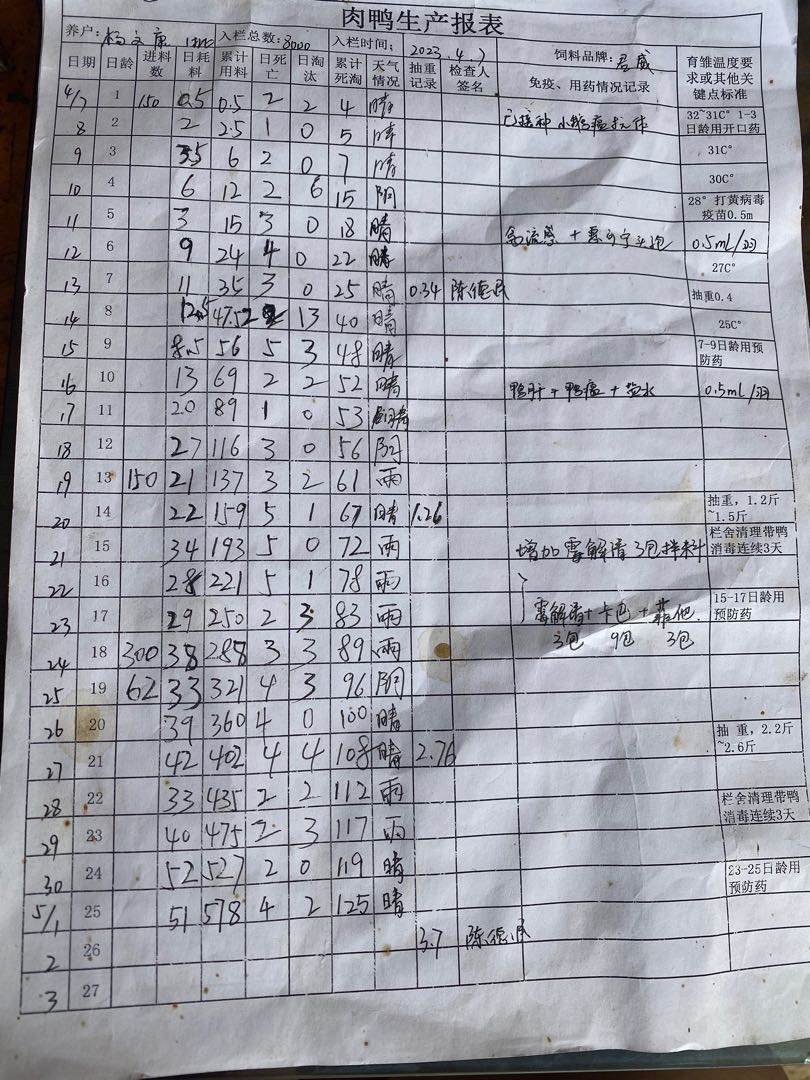 肉鸭生产报表
养户: 杨文康 入栏总数: 8000 入栏时间: 2023.4.7 饲料品牌: 君威
日期 日龄 进料数 日耗料 累计用料 日死亡 日淘汰 累计死淘 天气情况 抽重记录 检查人签名 免疫、用药情况记录 育雏温度要求或其他关键点标准
4/7 1 150 0.5 0.5 2 2 4 晴 已接种小鹅瘟抗体 32~31C° 1-3日龄用开口药
8 2 2 2.5 1 0 5 晴
9 3 3.5 6 2 0 7 晴 31C°
10 4 6 12 2 6 15 阴 30C°
11 5 3 15 3 0 18 晴 28° 打黄病毒疫苗0.5m
12 6 9 24 4 0 22 晴 禽流感 + 0.5mL/羽 27C°
13 7 11 35 3 0 25 晴 0.34 陈德民 抽重0.4
14 8 12.5 47.5 2 13 40 晴 25C°
15 9 8.5 56 5 3 48 晴 7-9日龄用预防药
16 10 13 69 2 2 52 晴 鸭肝 + 鸭瘟 + 盐水 0.5mL/羽
17 11 20 89 1 0 53
18 12 27 116 3 0 56 阴
19 13 150 21 137 3 2 61 雨
20 14 22 159 5 1 67 晴 1.26 抽重，1.2斤~1.5斤
21 15 34 193 5 0 72 雨 增加霉解清3包拌料 栏舍清理带鸭消毒连续3天
22 16 28 221 5 1 78 雨
23 17 29 250 2 3 83 雨 霉解清+卡巴+ 15-17日龄用预防药
24 18 300 38 288 3 3 89 雨 3包 9包 3包
25 19 62 33 321 4 3 96 阴
26 20 39 360 4 0 100 晴
27 21 42 402 4 4 108 晴 2.76 抽 重，2.2斤~2.6斤
28 22 33 435 2 2 112 雨
29 23 40 475 2 3 117 雨 栏舍清理带鸭消毒连续3天
30 24 52 527 2 0 119 晴
5/1 25 51 578 4 2 125 晴 23-25日龄用预防药
2 26 3.7 陈德民
3 27